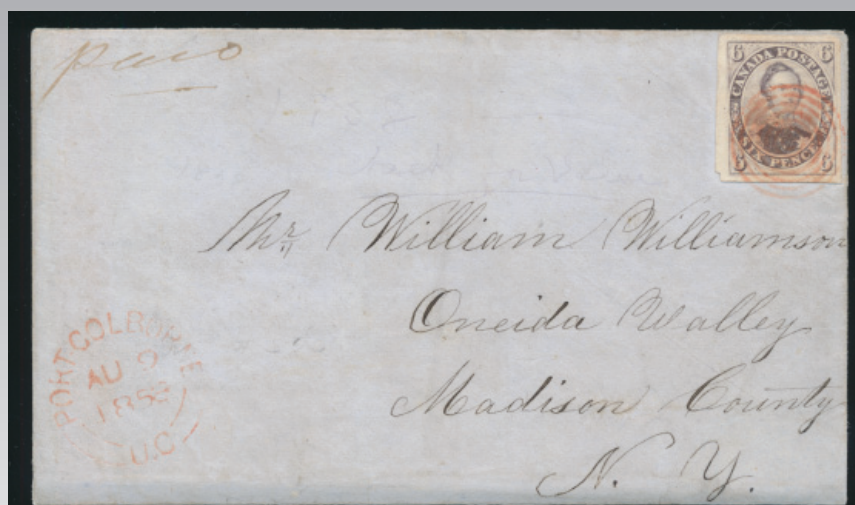 paid
6 CANADA POSTAGE 6
6 SIX PENCE 6
Mr. William Williamson
Oneida Valley
Madison County
N. Y.
PORT COLBORNE
AU 9
U.C